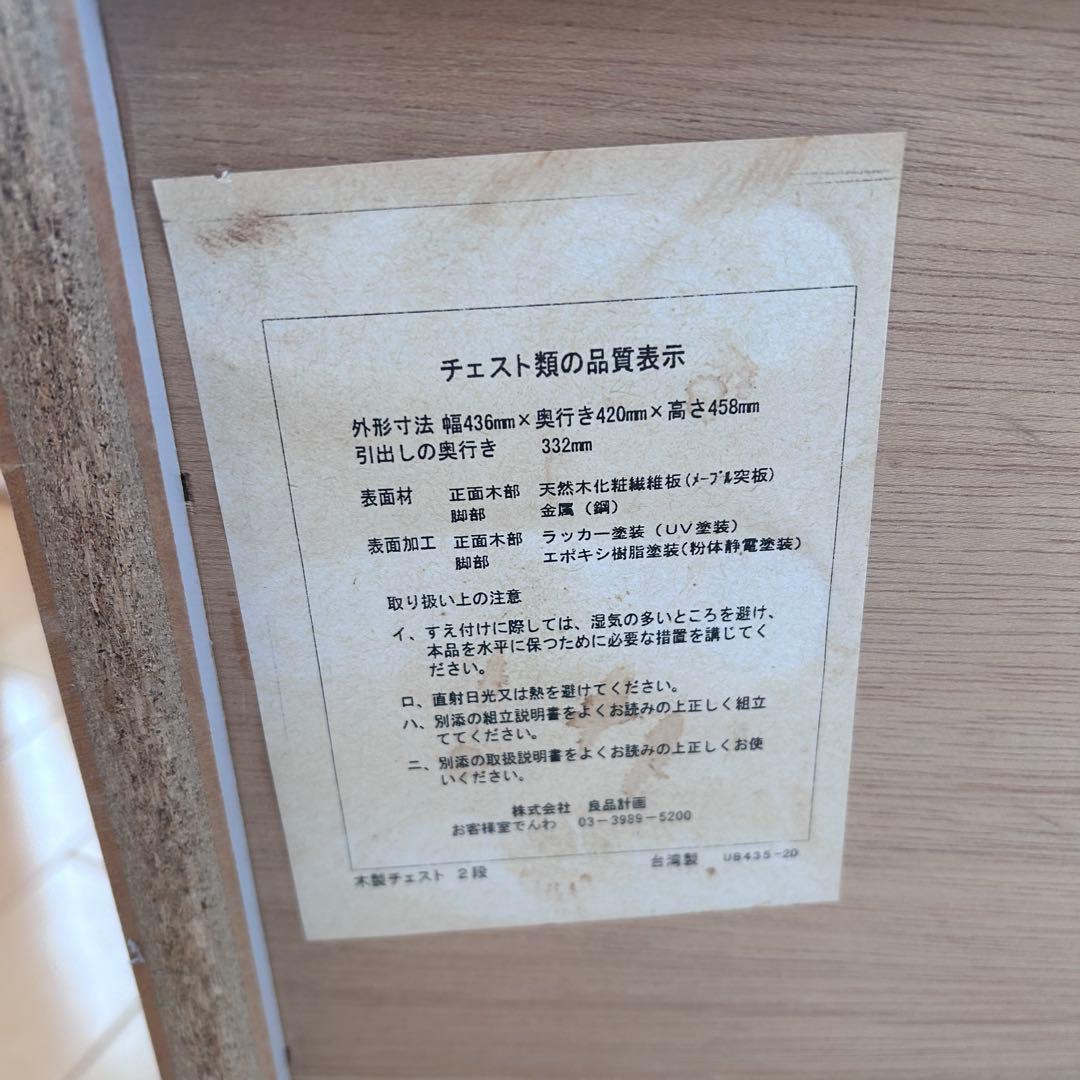 チェスト類の品質表示
外形寸法 幅436mm×奥行き420mm×高さ458mm
引出しの奥行き 332mm
表面材 正面木部 天然木化粧繊維板(メープル突板)
脚部 金属(鋼)
表面加工 正面木部 ラッカー塗装(UV塗装)
脚部 エポキシ樹脂塗装(粉体静電塗装)
取り扱い上の注意
イ、すえ付けに際しては、湿気の多いところを避け、
本品を水平に保つために必要な措置を講じてく
ださい。
ロ、直射日光又は熱を避けてください。
ハ、別添の組立説明書をよくお読みの上正しく組立
ててください。
ニ、別添の取扱説明書をよくお読みの上正しくお使
いください。
株式会社 良品計画
お客様室でんわ 03-3989-5200
木製チェスト 2段 台湾製 UB435-2D